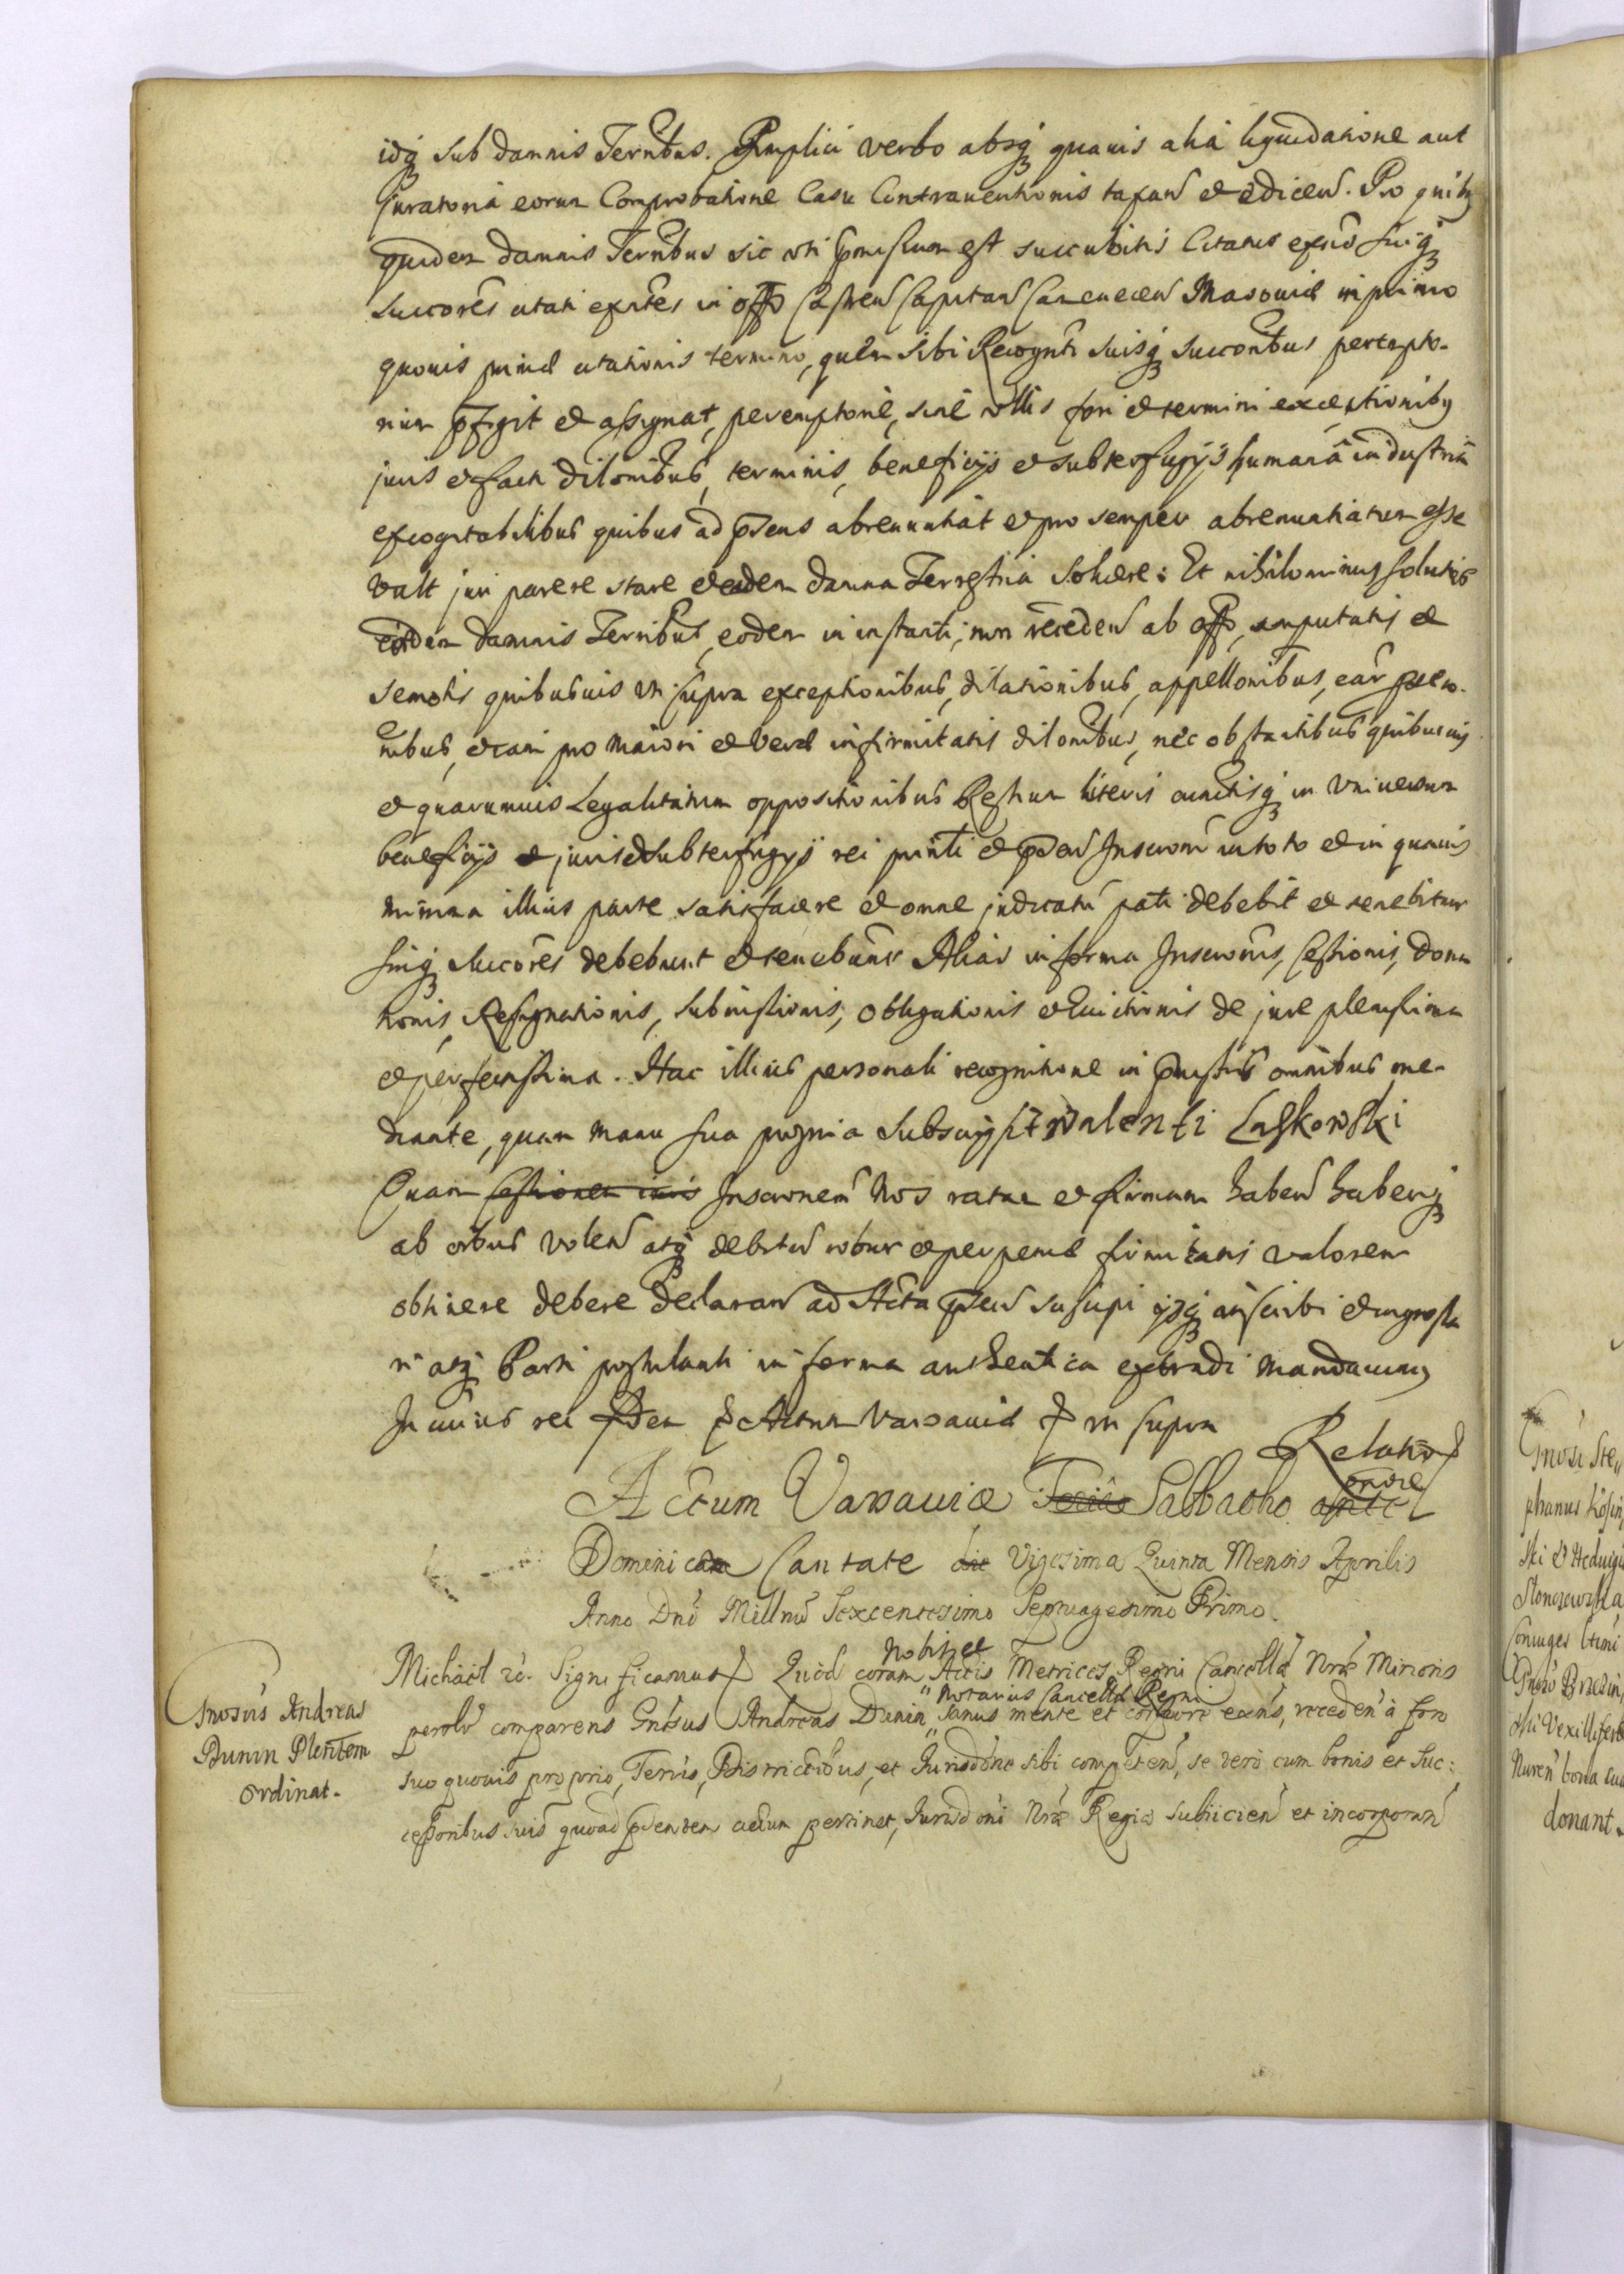 idq sub damnis Terribus. Simplici verbo absq quavis alia liquidatione aut
juratoria eorum Comprobatione Casu Contraventionis taxan et edicen. Pro quibq
quidem damnis Terribus sic uti praemissum est succubitis Citatus exns suiq
succores citati exntes in offo Castren Capitan Camenecen Masoviae in primo
quovis primae citationis termino, quem sibi Recognti suisq succoribus perempto-
rium pfigit et assignat, peremptorie, sine ullis fori et termini exceptionibq
juris et facti dilonibus, terminis, beneficijs et subterfugijs humana industria
excogitabilibus quibus ad psens abrenuntiat et pro semper abrenuntiatum esse
vult juri parere stare et eadem damna Terrestria Solvere: Et nihilominus solutis
eisdem damnis Terribus, eodem in instanti, non receden ab offo, amputatis et
semotis quibusvis uti supra exceptionibus, dilationibus, appellonibus, ear psecu-
nibus, etiam pro maiori et verae infirmitatis dilonibus, nec obstantibus quibusvis
et quarumvis Legalitatum oppositionibus Restium literis cunctisq in universum
beneficijs et juris et subterfugijs rei printi et psen Inscrom in toto et in quavis
minima illius parte satisfacere et omne judicatu pati debebit et tenebitur
suiq succores debebunt et tenebuntr Alias in forma Inscronis, Cessionis, Dona
tionis, Resignationis, Submissionis, Obligationis et Evictionis de jure plenissima
et perfectissima. Hac illius personali recognitione in pmissis omnibus me-
diante, quam manu sua propria subscripsit Walenti Laskowski
Quam Cessionem iuris Inscronem Nos ratam et firmam haben haberiq
ab oibus volen atq debitu robur et perpetuae firmitatis valorem
obtinere debere Declaran ad Acta psen suscipi ijsq inscribi et ingrossa
ri atq Parti postulanti in forma authentica extradi mandavimq
In cuius rei fidem Actum Varsaviae uti supra
Relatio
Actum Varsaviae Feria Sabbatho ante
pridie
Dominicam Cantate die Vigesima Quinta Mensis Aprilis
Anno Dni Millmo Sexcentesimo Septuagesimo Primo.
Nobis et
Michael etc. Significamus Quod coram Actis Metrices Regni Cancellae Nrae Minoris
" Notarius Cancellae Regni
persolr comparens Gnosus Andreas Dunin " sanus mente et corpore exns, receden a foro
suo quovis proprio, Terris, Districtibus, et Jurisdone sibi competen, se vero cum bonis et Suc:
cessoribus suis quoad psentem actum pertinet, Jurisdoni Nrae Regiae subiicien et incorporan
Gnosus Andreas
Dunin Plenitem
ordinat.
Gnosi Ste"
phanus
ski et Heduigis
Coniuges
ski Vexillifero
bona
donant.